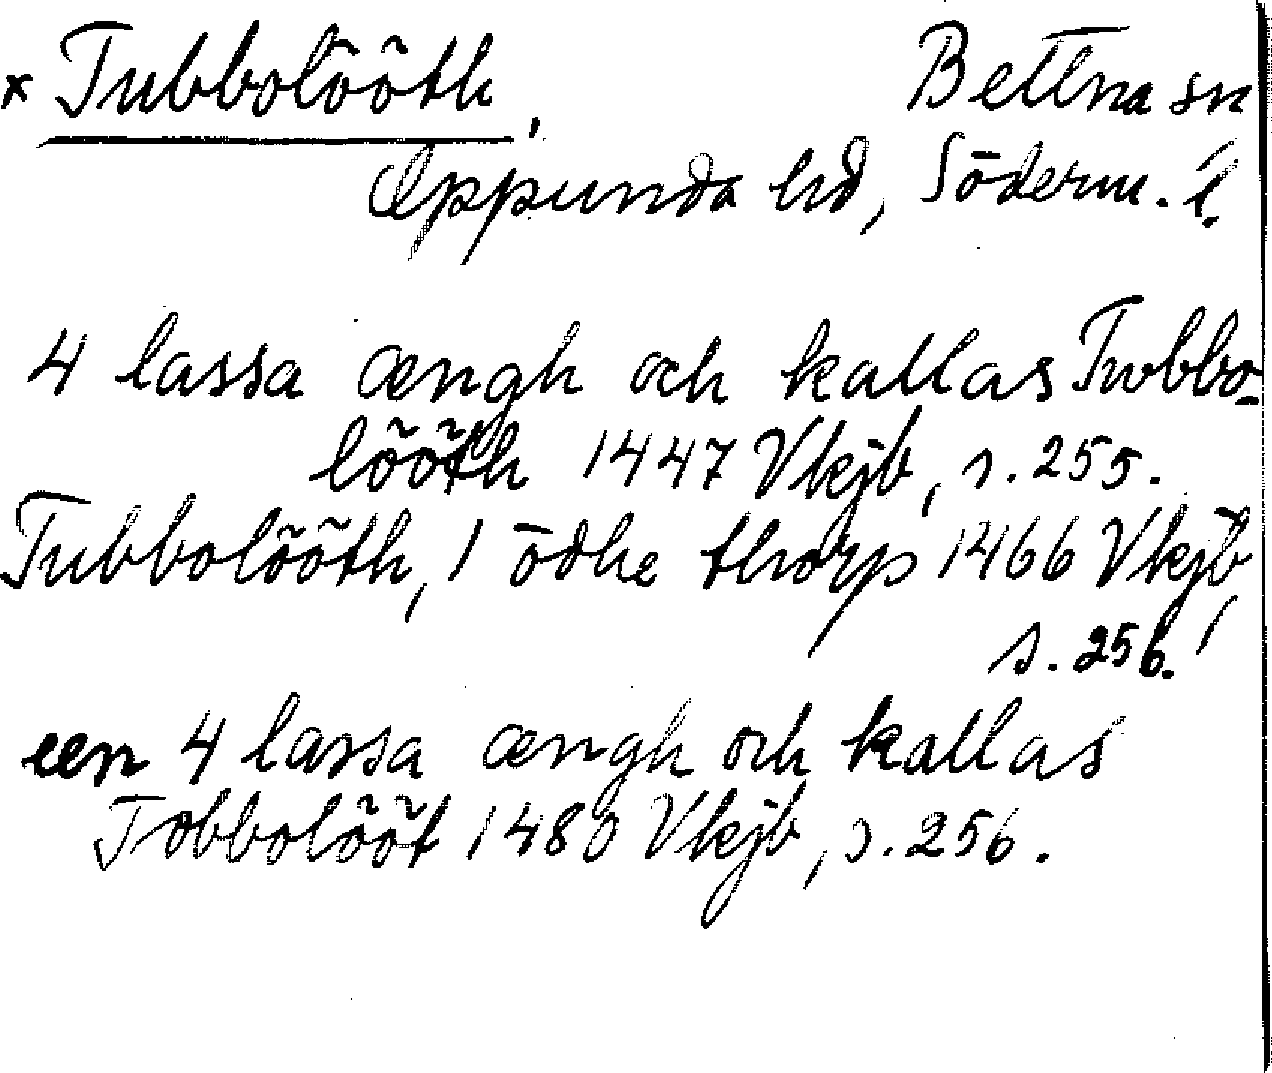 × Tubbolõõth, Bettna sn
Oppunda hd, Söderm. l.
4 lassa ængh och kallas Twbbo-
lõõth 1447 Vkjb, s. 255.
Tubbolõõth, 1 ödhe thorp 1466 Vkjb,
s. 256.
een 4 lassa ængh och kallas
Tobbolõõt 1480 Vkjb, s. 256.